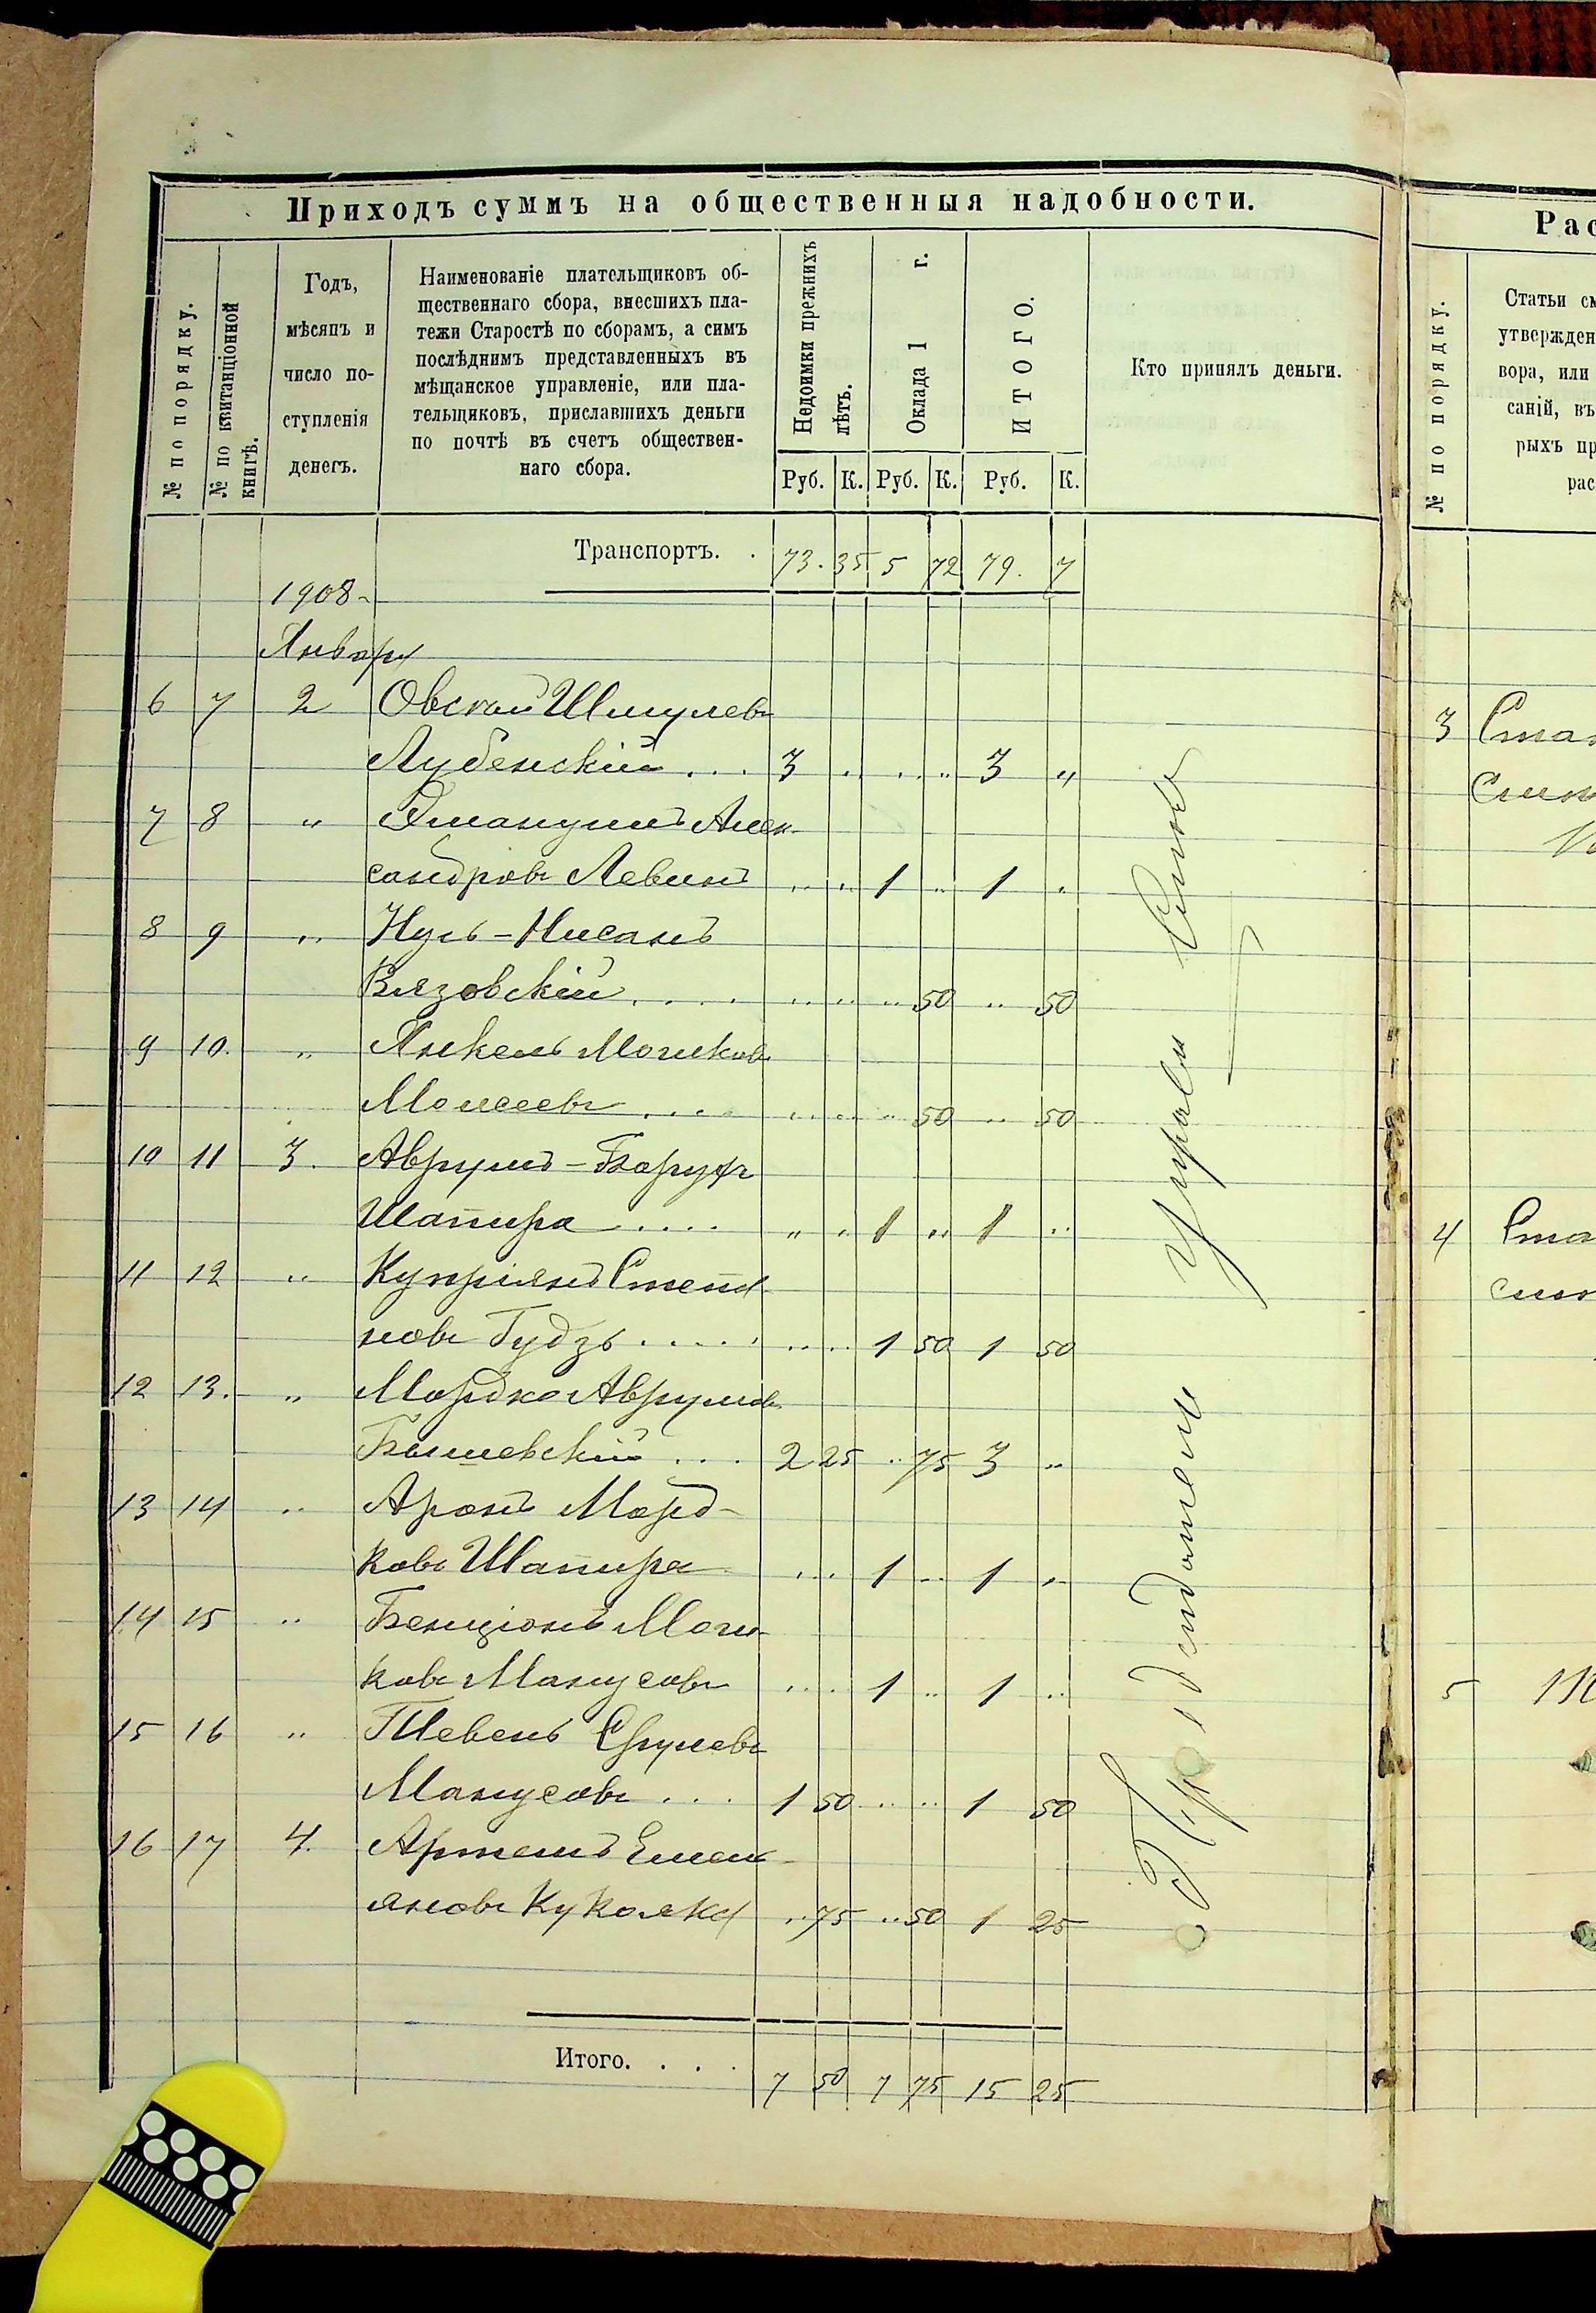 Приходъ суммъ на общественныя надобности.
№ по порядку.
№ по квитанціонной
книгѣ.
Годъ,
мѣсяцъ и
число по-
ступленія
денегъ.
Наименованіе плательщиковъ об-
щественнаго сбора, внесшихъ пла-
тежи Старостѣ по сборамъ, а симъ
послѣднимъ представленныхъ въ
мѣщанское управленіе, или пла-
тельщиковъ, приславшихъ деньги
по почтѣ въ счетъ обществен-
наго сбора.
Недоимки прежнихъ
лѣтъ.
Оклада 1 г.
ИТОГО.
Кто принялъ деньги.
Руб. К. Руб. К. Руб. К.
Транспортъ. . 73. 35 5 72 79. 7
1908
Января
6 7 2 Овсей Шмулевъ
Лубенскій ... 3 .. .. .. 3 "
7 8 " Эмануилъ Алек-
сандровъ Левинъ .. .. 1 .. 1 ..
8 9 " Нусъ-Нисанъ
Вязовскій .... .. .. .. 50 .. 50
9 10. " Янкель Мошковъ
Моисеевъ .... .. .. .. 50 .. 50
10 11 3. Аврумъ-Борухъ
Шапира .... " " 1 " 1 "
11 12 " Купріянъ Степа-
новъ Гудзь ..... .. .. 1 50 1 50
12 13. " Мордко Аврумовъ
... 2 25 .. 75 3 "
13 14 " Аронъ Морд-
ковъ Шапира .. .. 1 .. 1 ..
14 15 " Бенціонъ Мош-
ковъ Манусовъ .. .. 1 .. 1 ..
15 16 " Тевель Срулевъ
Манусовъ ... 1 50 .. .. 1 50
16 17 4. Артемъ Емель-
яновъ Куколка .. 75 .. 50 1 25
Итого. . . . 7 50 7 75 15 25
Предсѣдатель Управы
Рас
№ по порядку.
Статьи см
утвержден
вора, или
саній, въ
рыхъ пр
рас
3 Ста
4 Ста
5